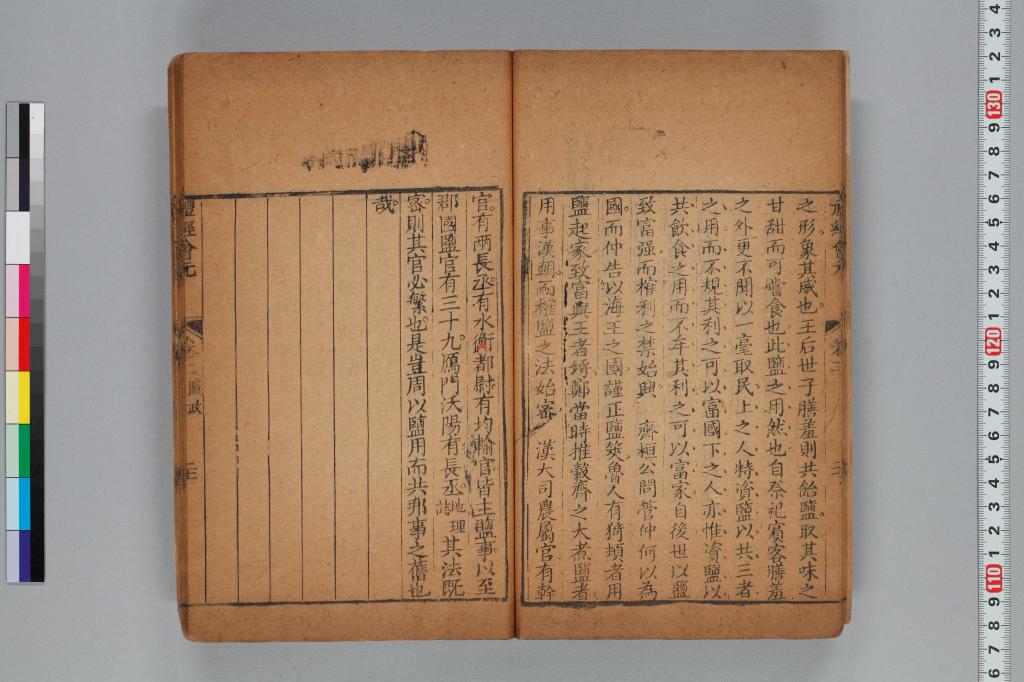 之形象其威也王后世子膳羞則共飴鹽取其味之
甘甜而可嘗食也此鹽之用然也自祭祀賓客膳羞
之外更不聞以一毫取民上之人特資鹽以共三者
之用而不規其利之可以富國下之人亦惟資鹽以
共飲食之用而不牟其利之可以富家自後世以鹽
致富强而榷利之禁始興 齊桓公問管仲何以為
國而仲告以海王之國謹正鹽筴魯人有猗頓者用
鹽起家致富與王者埒鄭當時推轂齊之大煮鹽者
用事漢朝而榷鹽之法始密 漢大司農屬官有幹
官有兩長丞有水衡都尉有均輸官皆主鹽事以至
郡國鹽官有三十九鴈門沃陽有長丞地理誌其法既
密則其官必繁也是豈周以鹽用而共邦事之舊也
哉
禮經會元
卷二 鹽政
4 3 2 1 130 9 8 7 6 5 4 3 2 1 120 9 8 7 6 5 4 3 2 1 110 9 8 7 6